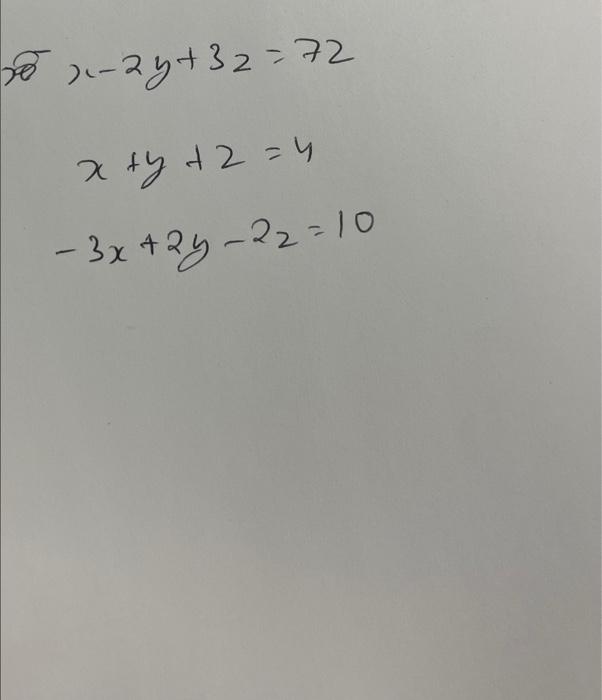 x-2y+3z=72
x+y+z=4
-3x+2y-2z=10